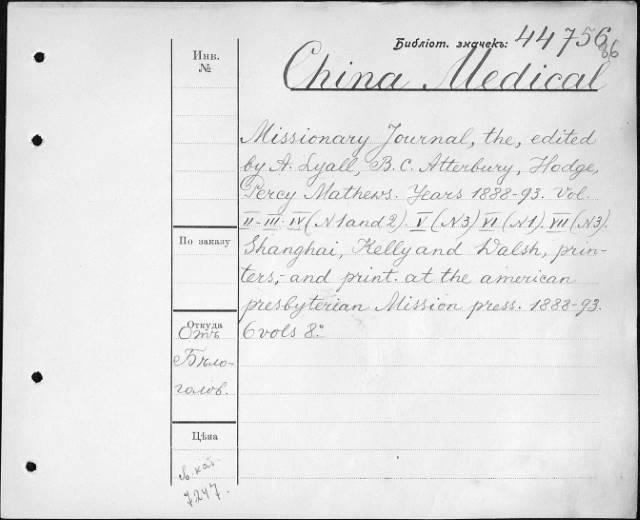 Библіот. значекъ: 44756
86
Инв.
№
China Medical
Missionary Journal, the, edited
by A. Lyall, B. C. Atterbury, Hodge,
Percy Mathews. Years 1888-93. Vol.
II-III-IV (N 1 and 2). V (N3) VI (N1). VII (N3).
По заказу
Shanghai, Kelly and Walsh, prin-
ters,- and print. at the american
presbyterian Mission press. 1888-93.
6 vols 8:°
Откуда
Отъ
Бѣло-
голов.
Цѣна
кат.
7247.